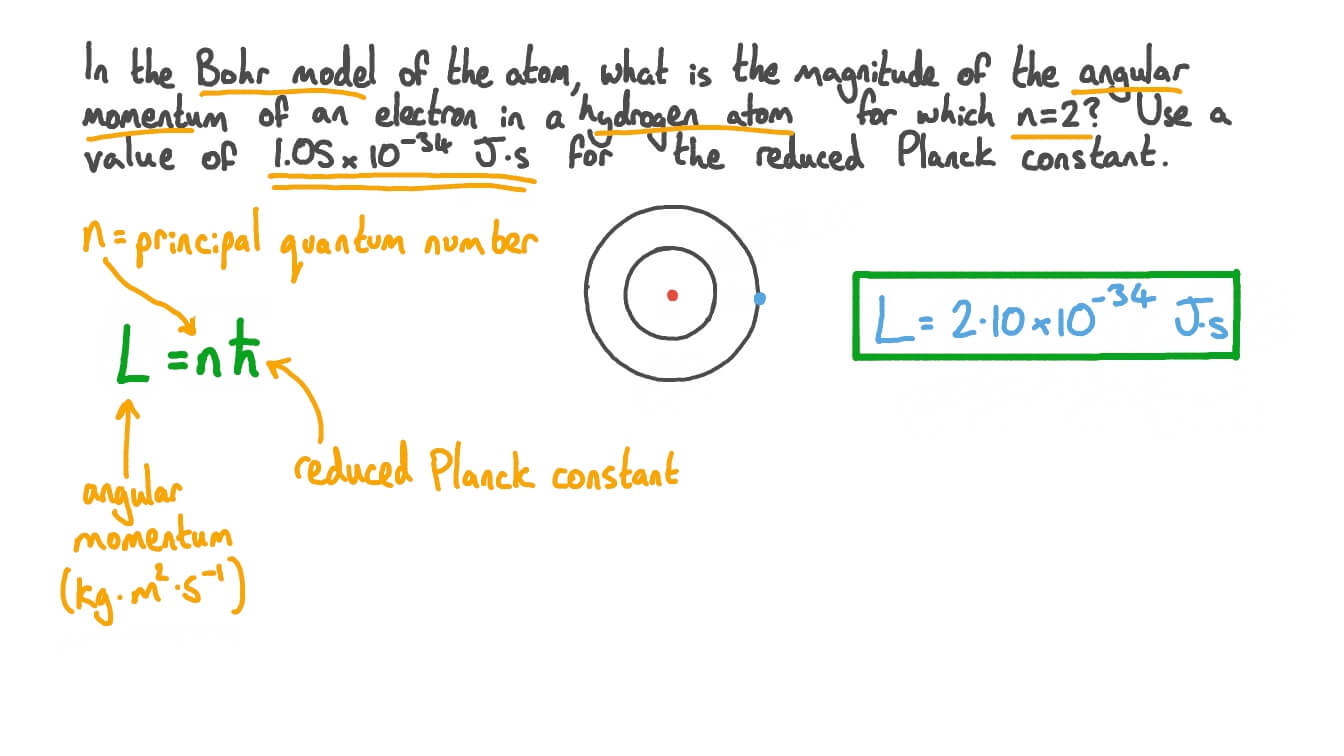 In the Bohr model of the atom, what is the magnitude of the angular
momentum of an electron in a hydrogen atom for which n=2? Use a
value of 1.05 × 10⁻³⁴ J·s for the reduced Planck constant.
n = principal quantum number
L = nħ
L = 2·10 × 10⁻³⁴ J·s
reduced Planck constant
angular
momentum
(kg·m²·s⁻¹)